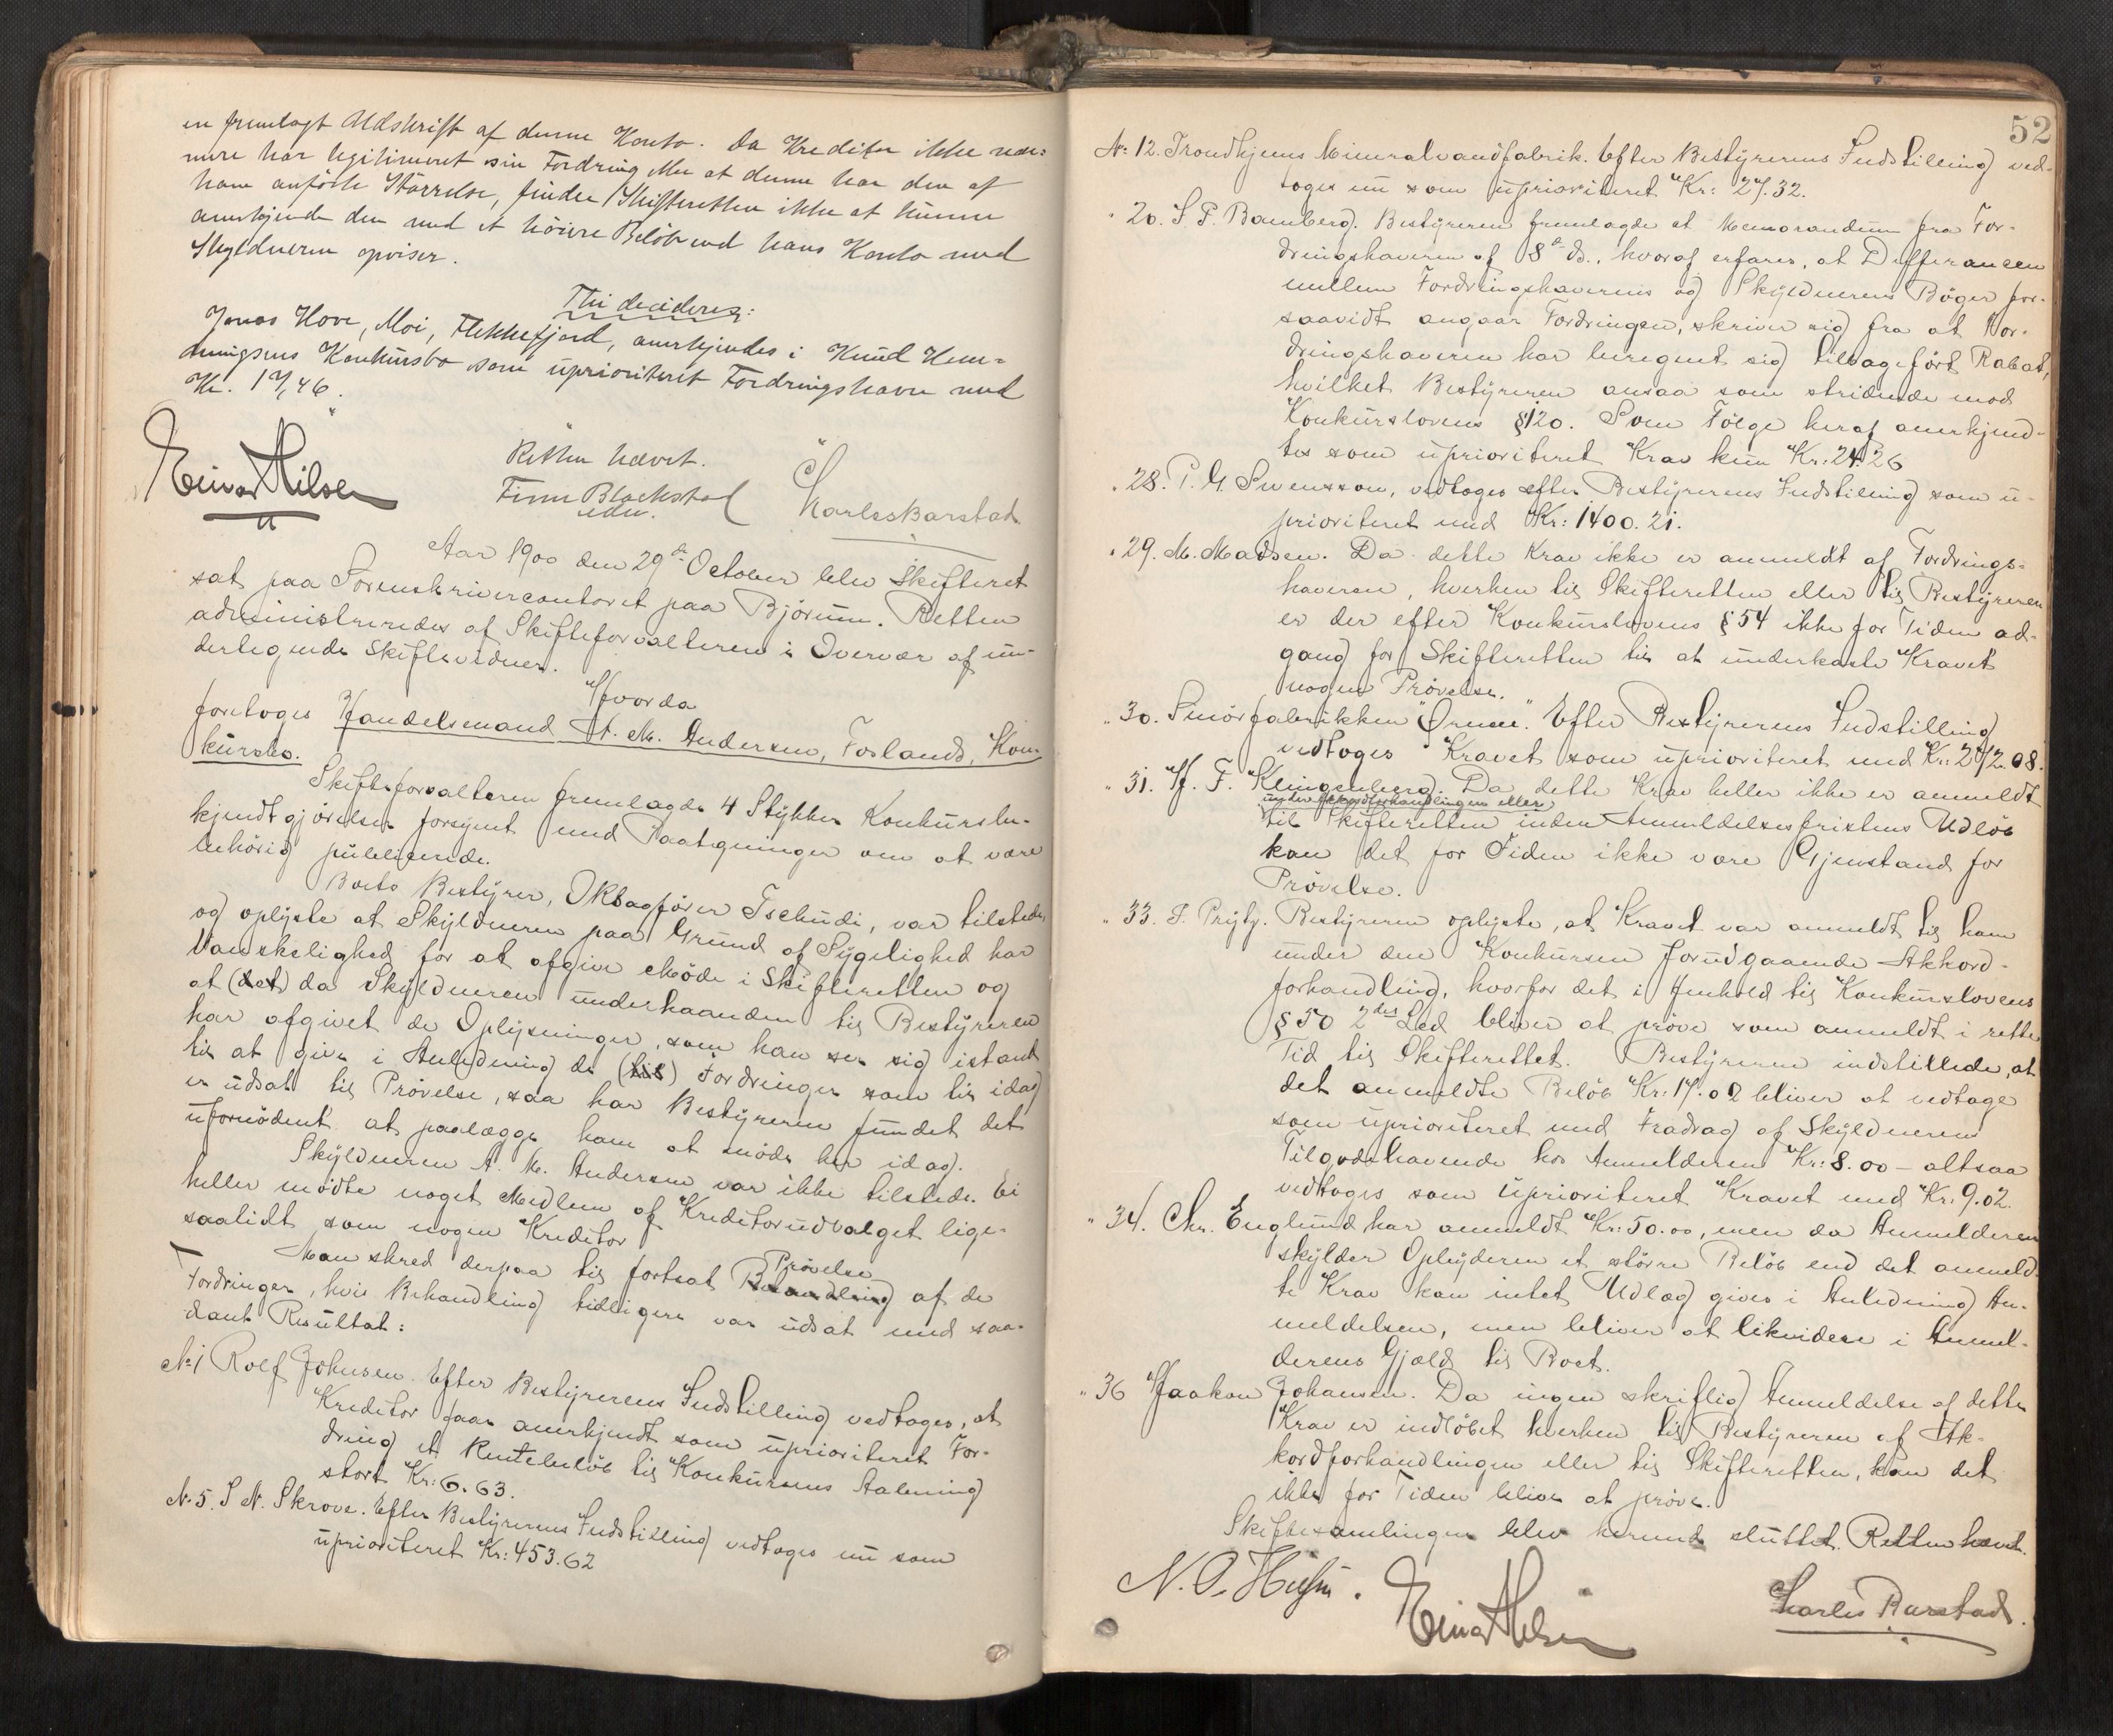 en fremlagt Udskrift af denne Konto. Da Kreditor ikke nær-
mere har legitimeret sin Fordring eller at denne har den af
ham anførte Størrelse, finder Skifteretten ikke at kunne
anerkjende den med et høiere Beløb end hans Konto med
Skyldneren opviser.
Thi decideres:
Jonas Hove, Moi, Flekkefjord, anerkjendes i Knud Hem-
mingsens Konkursbo som uprioriteret Fordringshaver med
Kr. 17,46.
Retten hævet.
Einar Nilsen
Finn Blackstad
edv.
Charles Barstad
Aar 1900 den 29de October blev Skifteret
sat paa Sorenskrivercontoret paa Bjørum. Retten
administreredes af Skifteforvalteren i Overvær af un-
dertegnede Skiftevidner.
Hvorda
foretoges Handelsmand A. M. Andersen, Foslands, Kon-
kursbo.
Skifteforvalteren fremlagde 4 Stykker Konkursbe-
kjendtgjørelser forsynet med Paategninger om at være
behørig publicerede.
Boets Bestyrer, Oksagfører Tschudi, var tilstede,
og oplyste at Skyldneren paa Grund af Sygelighed har
Vanskelighed for at afgive Møde i Skifteretten og
at (det) da Skyldneren underhaanden til Bestyreren
har afgivet de Oplysninger, som han ser sig istand
til at give i Anledning de (til) Fordringer som til idag
er udsat til Prøvelse, saa har Bestyreren fundet det
ufornødent at paalægge ham at møde her idag.
Skyldneren A. M. Andersen var ikke tilstede. Ei
heller mødte noget Medlem af Kreditorudvalget lige-
saalidt som nogen Kreditor
Man skred derpaa til fortsat Behandling Prøvelse af de
Fordringer, hvis Behandling tidligere var udsat med saa-
dant Resultat:
No 1 Rolf Johnsen. Efter Bestyrerens Indstilling vedtoges, at
Kreditor faar anerkjendt som uprioriteret For-
dring et Rentebeløb til Konkursens Aabning
stort Kr: 6.63.
No 5. S N. Skrove. Efter Bestyrerens Indstilling vedtoges nu som
uprioriteret Kr: 453.62
52
No 12. Trondhjems Mineralvandfabrik. Efter Bestyrerens Indstilling ved-
toges nu som uprioriteret Kr: 27.32.
" 20. S P. Bamberg. Bestyreren fremlagde et Memorandum fra For-
dringshaveren af 8de ds., hvoraf erfares, at Differancen
mellem Fordringshaverens og Skyldnerens Bøger for-
saavidt angaar Fordringen, skriver sig fra at For-
dringshaveren har beregnet sig tilbageført Rabat,
hvilket Bestyreren ansaa som stridende mod
Konkurslovens §120. Som Følge heraf anerkjend-
tes som uprioriteret Krav kun Kr: 24.26
" 28. P. G. Swensson, vedtoges efter Bestyrerens Indstilling som u-
prioriteret med Kr: 1400.21.
" 29. M. Madsen. Da dette Krav ikke er anmeldt af Fordrings-
haveren, hverken til Skifteretten eller til Bestyreren
er der efter Konkurslovens §54 ikke for Tiden ad-
gang for Skifteretten til at underkaste Kravet
nogen Prøvelse.
" 30. Smørfabrikken "Ørnen". Efter Bestyrerens Indstilling
vedtoges Kravet som uprioriteret med Kr: 272.08.
" 31. H. F. Klingenberg. Da dette Krav heller ikke er anmeldt
under Akkordforhandlingen eller
til Skifteretten inden Anmeldelsesfristens Udløb
kan det for Tiden ikke være Gjenstand for
Prøvelse.
" 33. F. Prytz. Bestyreren oplyste, at Kravet var anmeldt til ham
under den Konkursen forudgaaende Akkord-
forhandling, hvorfor det i Henhold til Konkurslovens
§50 2det Led bliver at prøve som anmeldt i rette
Tid til Skifterettet. Bestyreren indstillede, at
det anmeldte Beløb Kr: 17.02 bliver at vedtage
som uprioriteret med Fradrag af Skyldnerens
Tilgodehavende hos Anmelderen Kr: 8.00 – altsaa
vedtoges som uprioriteret Kravet med Kr. 9.02.
" 34. Chr. Englund har anmeldt Kr: 50.00, men da Anmelderen
skylder Opbyderen et større Beløb end det anmeld-
te Krav kan intet Udlæg gives i Anledning An-
meldelsen, men bliver at likvidere i Anmel-
derens Gjæld til Boet.
" 36 Haakon Johansen. Da ingen skriftlig Anmeldelse af dette
Krav er indløbet hverken til Bestyreren af Ak-
kordforhandlingen eller til Skifteretten, kan det
ikke for Tiden blive at prøve.
Skiftesamlingen blev hermed sluttet. Retten hævet.
Einar Nilsen
Charles Barstad.